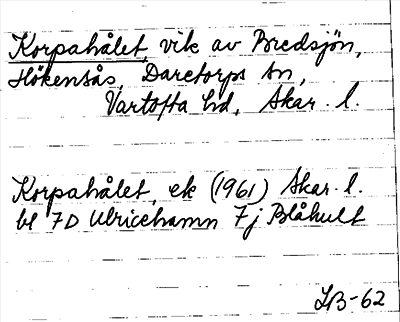 Korpahålet, vik av Bredsjön,
Hökensås, Daretorps sn,
Vartofta hd, Skar. l.
Korpahålet, ek (1961) Skar. l.
bl 7D Ulricehamn 7j Blåhult
LB-62